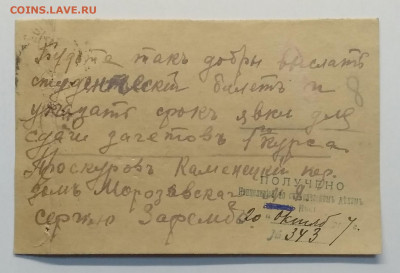 COINS.LAVE.RU
Будьте такъ добры выслать
студенческій билетъ и
указать срокъ явки для
сдачи зачетовъ 1 курса
Проскуровъ Каменецкій пер.
домъ Морозовскаго
ПОЛУЧЕНО
Сергѣю Зарембѣ
20 Октяб
№ 343